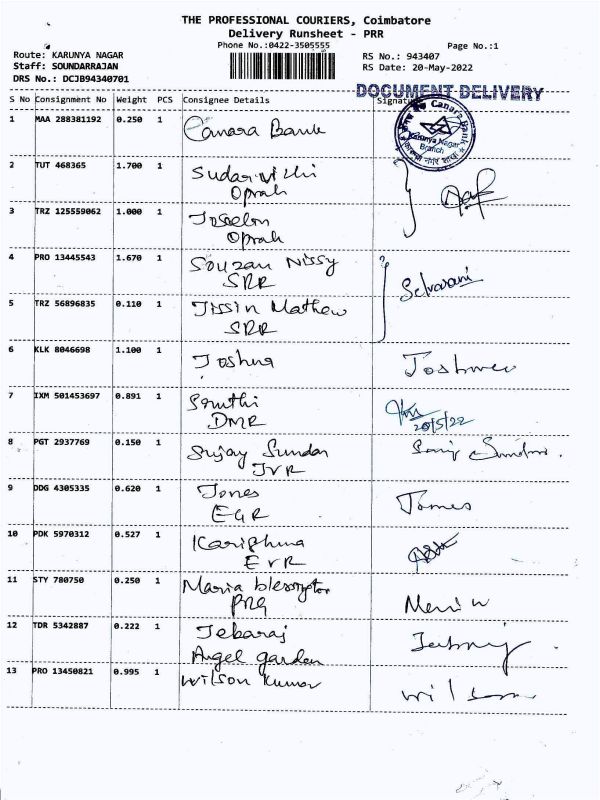 THE PROFESSIONAL COURIERS, Coimbatore
Delivery Runsheet - PRR
Phone No.:0422-3505555
Page No.:1
Route: KARUNYA NAGAR
RS No.: 943407
Staff: SOUNDARRAJAN
RS Date: 20-May-2022
DRS No.: DCJB94340701
DOCUMENT DELIVERY
S No Consignment No Weight PCS Consignee Details Signature
Canara Bank
Karunya Nagar
Branch
1 MAA 288381192 0.250 1 Canara Bank
2 TUT 468365 1.700 1
Oprah
3 TRZ 125559062 1.000 1 Joselin
Oprah
4 PRO 13445543 1.670 1 Souzan Nissy
SRR
Selvarani
5 TRZ 56896835 0.110 1 Jissin Mathew
SRR
6 KLK 8046698 1.100 1 Joshua
7 IXM 501453697 0.891 1 Sruthi
DMR
20/5/22
8 PGT 2937769 0.150 1 Sujay Sundar
JVR
9 DDG 4305335 0.620 1 Jones
EGR
10 PDK 5970312 0.527 1 Karishma
EVR
11 STY 780750 0.250 1 Maria
PRG
12 TDR 5342887 0.222 1 Jebaraj
Angel garden
13 PRO 13450821 0.995 1 Wilson Kumar